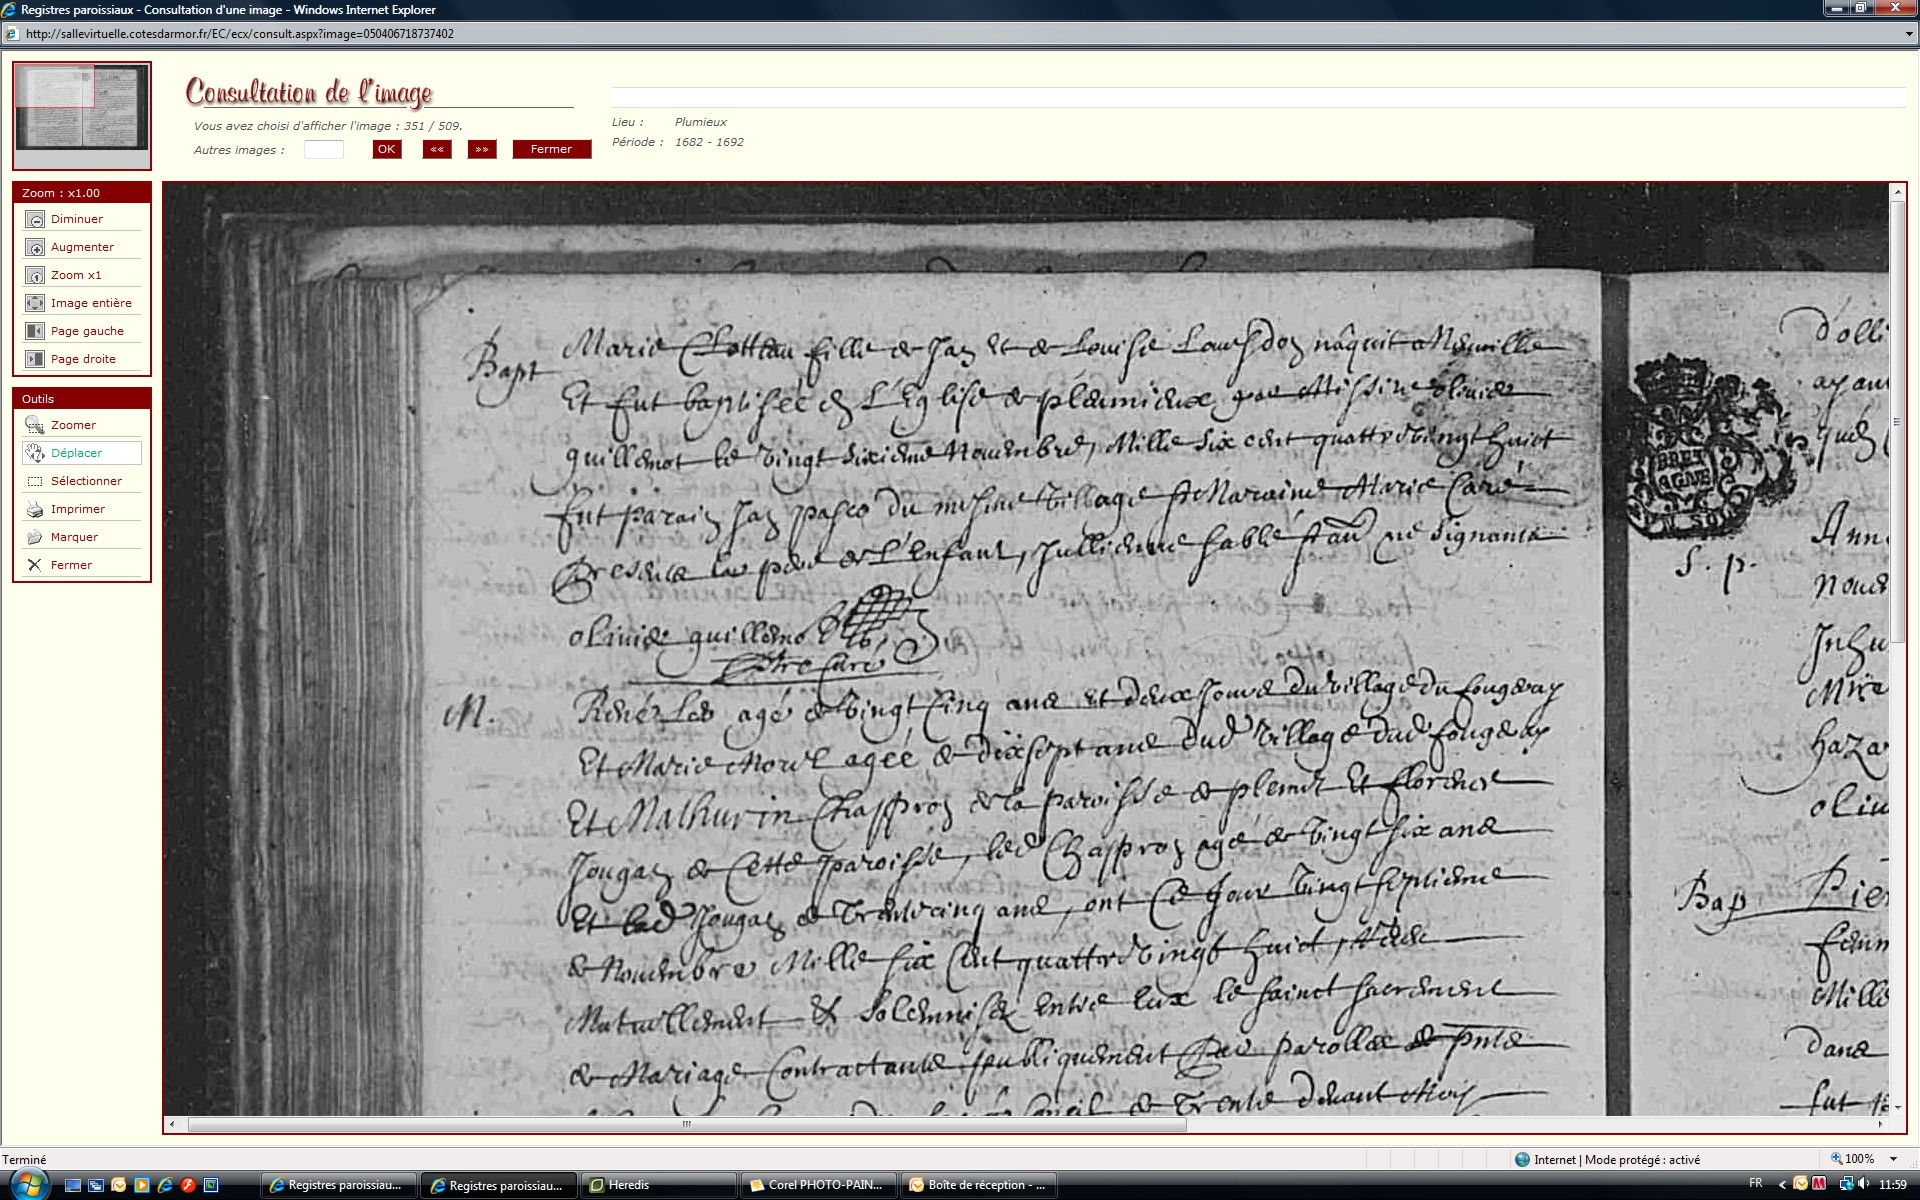 Registres paroissiaux - Consultation d'une image - Windows Internet Explorer
http://sallevirtuelle.cotesdarmor.fr/EC/ecx/consult.aspx?image=050406718737402
Consultation de l'image
Vous avez choisi d'afficher l'image : 351 / 509.
Autres images :
OK
««
»»
Fermer
Lieu : Plumieux
Période : 1682 - 1692
Zoom : x1.00
Diminuer
Augmenter
Zoom x1
Image entière
Page gauche
Page droite
Outils
Zoomer
Déplacer
Sélectionner
Imprimer
Marquer
Fermer
Bapt
Marie fille de Jan et de Louise nâquit
Et fut baptiseé en L'Eglise de pleumieux par Missire olivier
guillemot le vingt sixieme Novembre, Mille Six cent quattre vingt huict
fut parain Jan pasco du mesme village et Maraine Marie Caré
presence le pere de L'Enfant, Jullienne
olivier guillemot
M.
René agé de vingt Cinq ans et deux Jours du village du fougeray
Et Marie Morel ageé de dixsept ans dud village dud fougeray
Et Mathurin Chaffron de la paroisse de plemet Et florence
Jougan de Cette paroisse, led Chaffron agé de vingt six ans
Et lad Jougan de Trente cinq ans, ont Ce Jour vingt septieme
de Novembre Mille six Cent quattre vingt huict,
Mutuellement et Solemnisé entre eux le sainct sacrement
de Mariage Contractants publiquement par parolles de pnts
de Trente devant Moy
BRET
AGNE
S. p.
d'olli
ayan
Ann
Nove
Inhu
haza
oliv
Bap
Pier
Mille
dans
fut
Terminé
Internet | Mode protégé : activé
100%
Registres paroissiau...
Registres paroissiau...
Heredis
Corel PHOTO-PAIN...
Boîte de réception - ...
FR
11:59